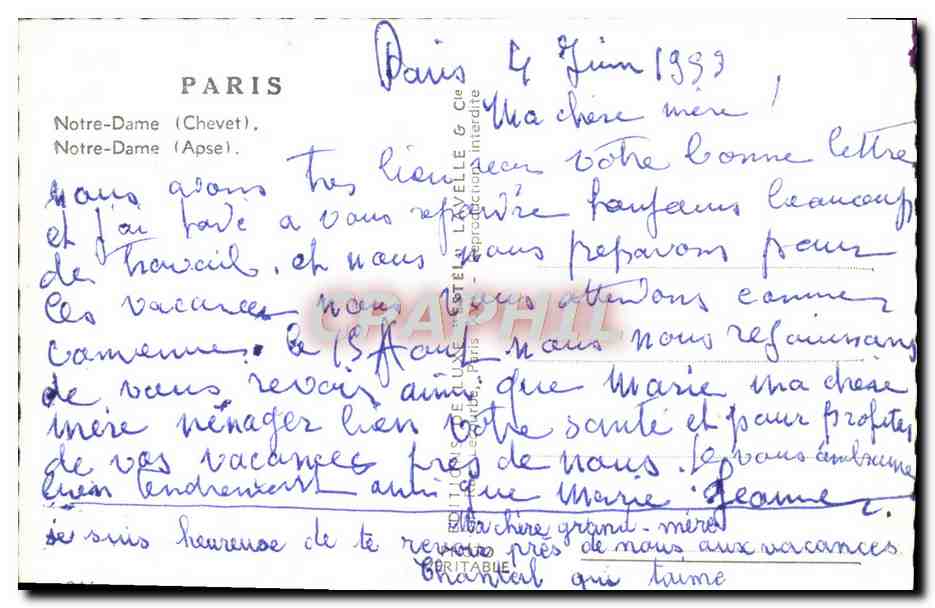 PARIS
Notre-Dame (Chevet).
Notre-Dame (Apse).
Paris 4 Juin 1959
Ma chère mère !
nous avons tres bien recu votre bonne lettre
et j'ai tardé a vous repondre toujours beaucoup
de travail. et nous nous preparons pour
les vacances nous vous attendons comme
convenue. le 15 Aout nous nous rejouissons
de vous revoir ainsi que Marie ma chere
mère ménager bien votre santé et pour profiter
de vos vacances près de nous. Je vous embrasse
bien tendrement ainsi que Marie Jeanne.
Ma chère grand-mère
je suis heureuse de te revoir près de nous aux vacances
Chantal qui t'aime
EDITIONS DE LUXE "ESTEL" LAVELLE & Cie
Paris - Reproduction interdite
VÉRITABLE
CPAPHIL